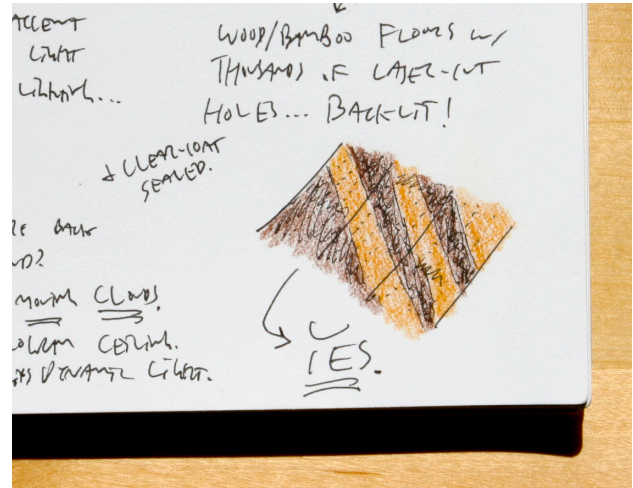 ACCENT
LIGHT
LIGHTING...
WOOD/BAMBOO FLOORS W/
THOUSANDS OF LASER-CUT
HOLES... BACK-LIT!
& CLEAR-COAT
SEALED.
BACK
MOVING CLOUDS.
CEILING.
DYNAMIC LIGHT.
YES.